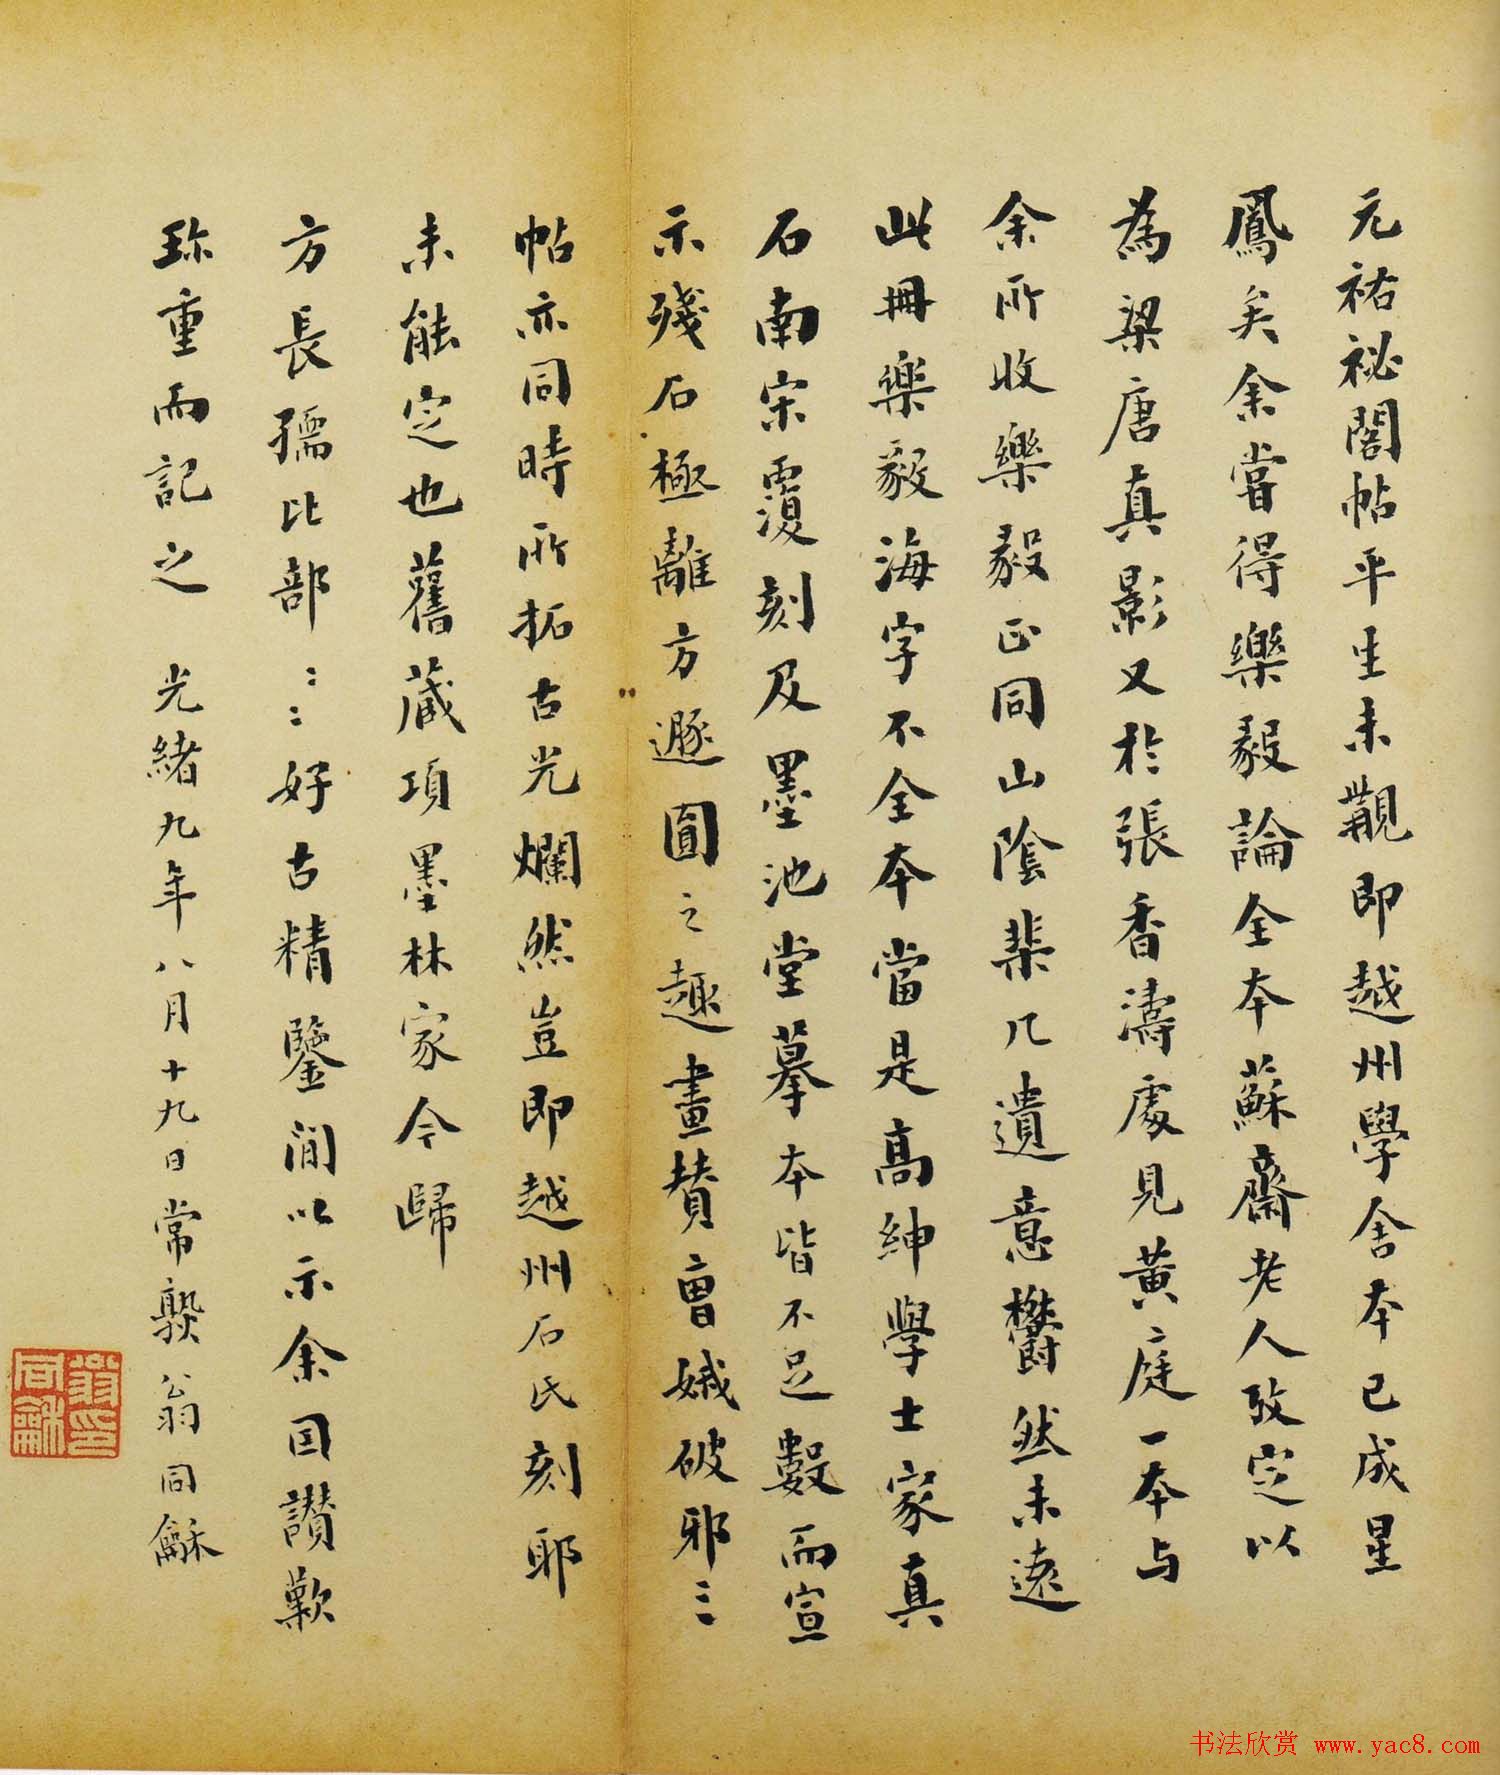 元祐祕閣帖平生未覯即越州學舍本已成星
鳳矣余嘗得樂毅論全本蘇齋老人攷定以
為梁唐真影又於張香濤處見黄庭一本与
余所收樂毅正同山陰棐几遺意欝然未遠
此冊樂毅海字不全本當是高紳學士家真
石南宋覆刻及墨池堂摹本皆不足數而宣
示殘石極離方遯圓之趣畫賛曹娥破邪三
帖亦同時所拓古光爛然豈即越州石氏刻耶
未能定也舊藏項墨林家今歸
方長孺比部::好古精鑒閒以示余因讃歎
珎重而記之 光緒九年八月十九日常熟翁同龢
翁印同龢
书法欣赏 www.yac8.com